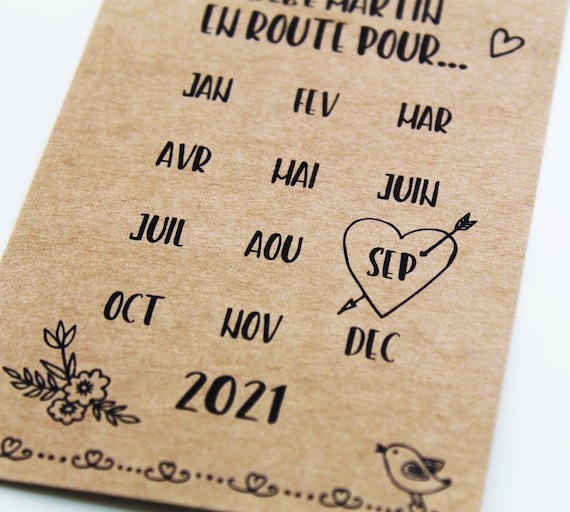 BÉBÉ MARTIN
EN ROUTE POUR...
JAN FEV MAR
AVR MAI JUIN
JUIL AOU SEP
OCT NOV DEC
2021